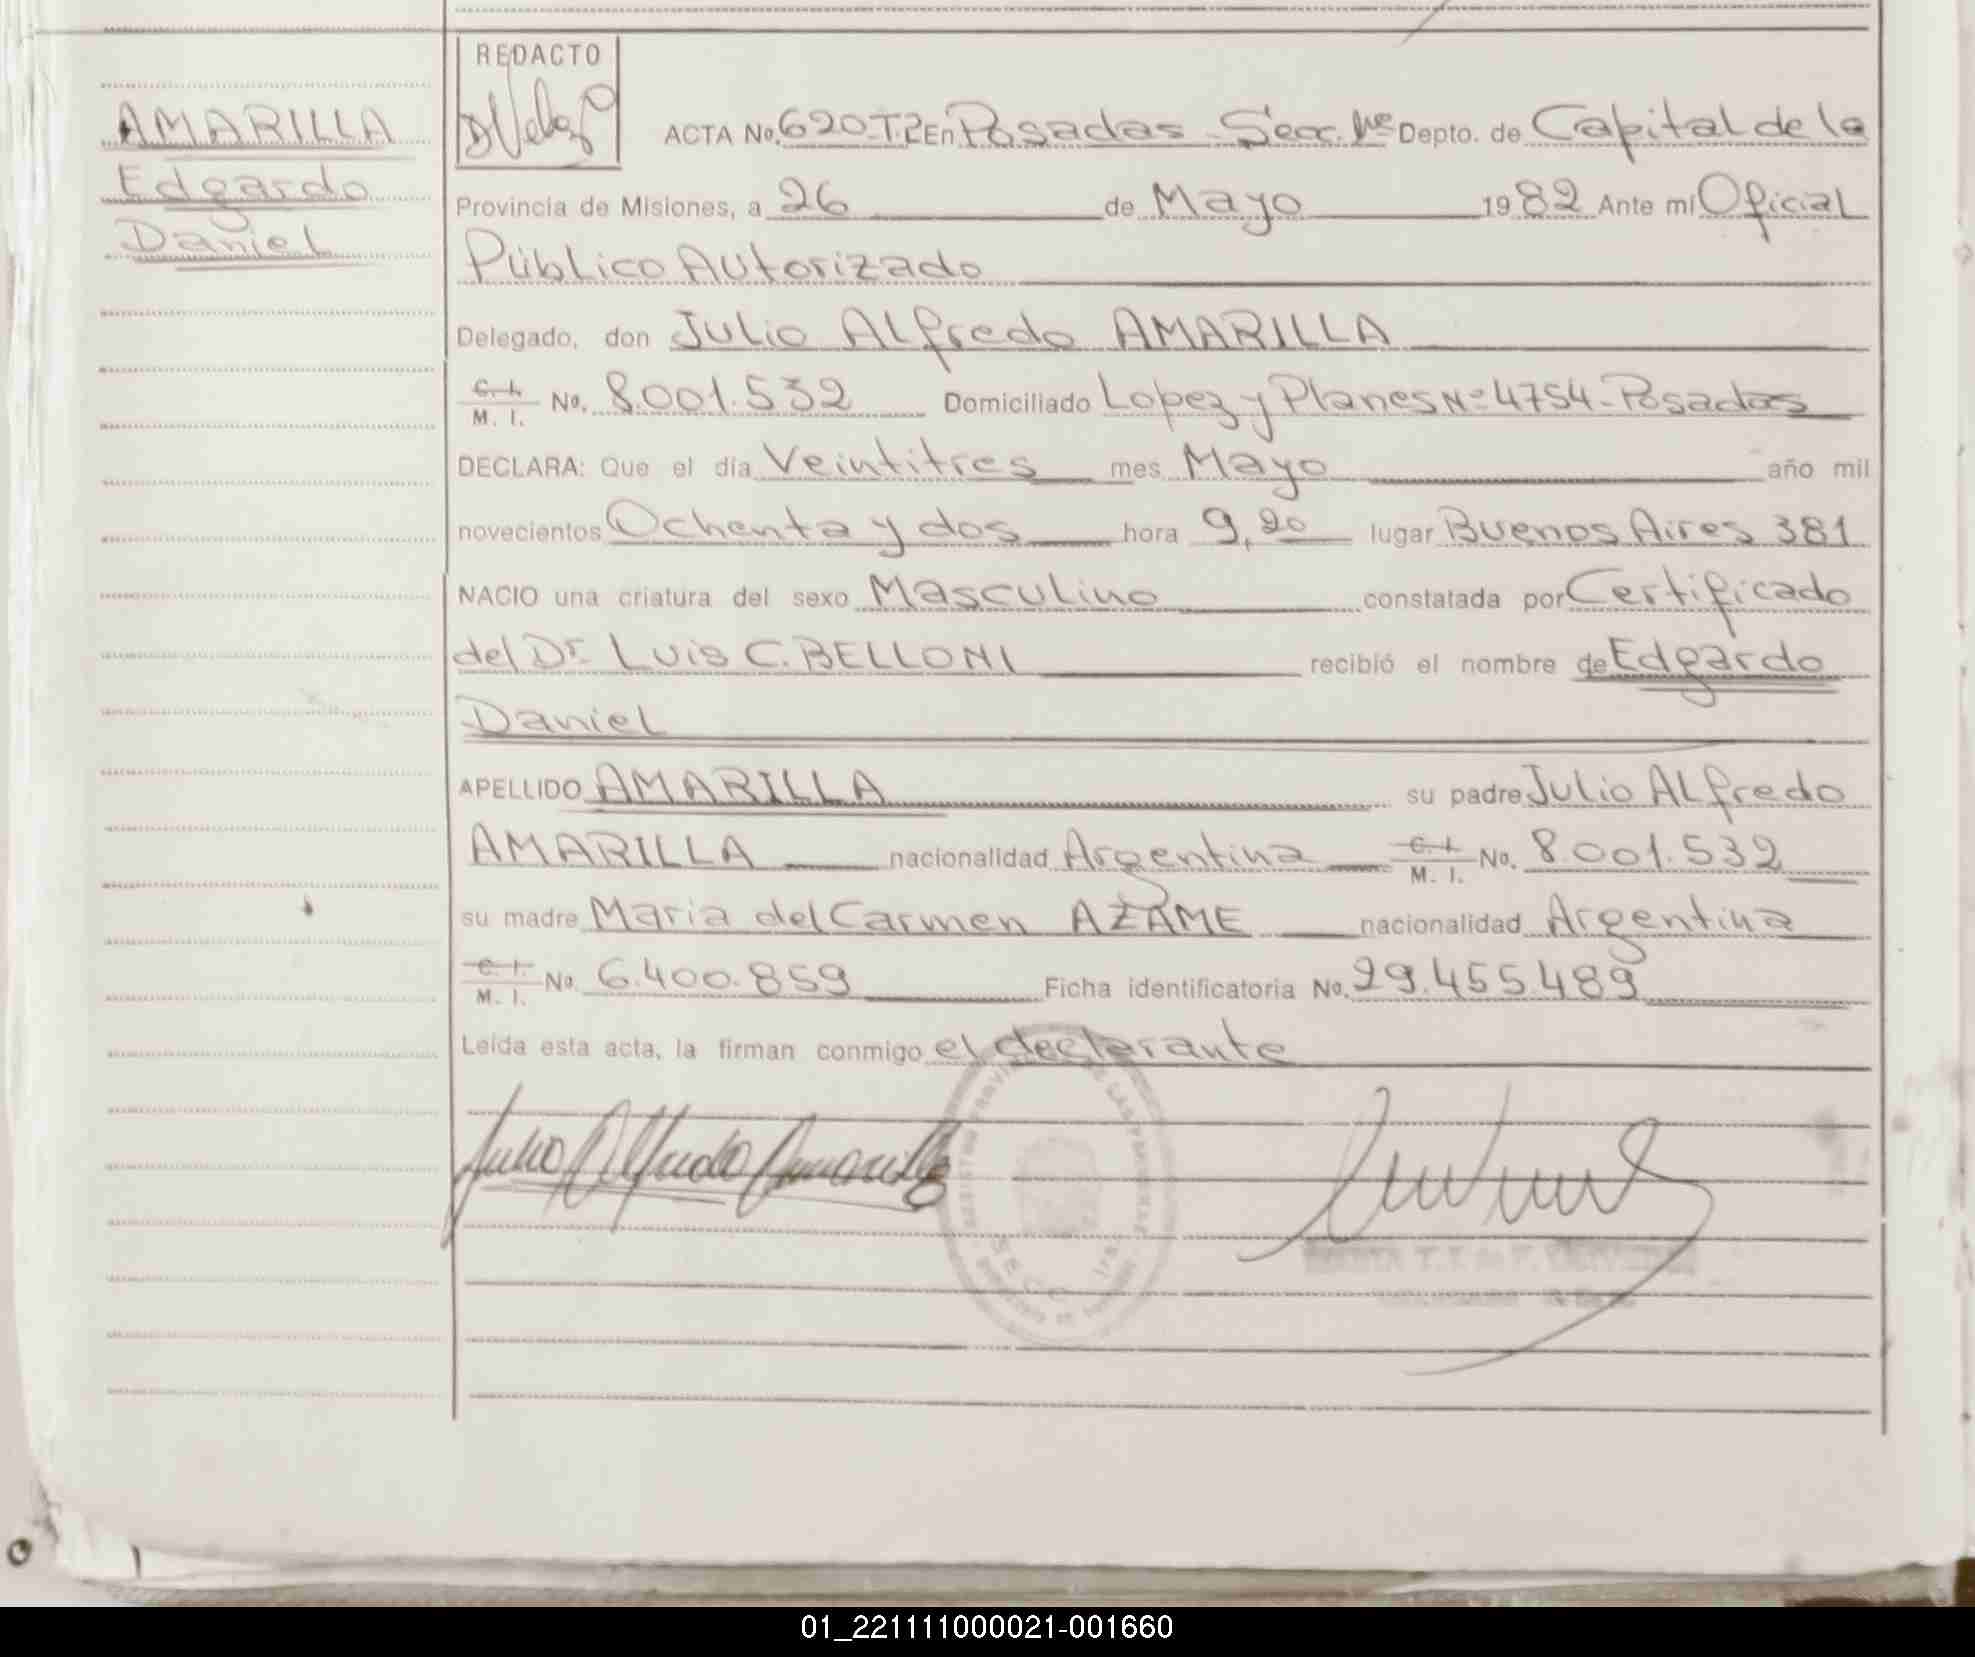 REDACTO
AMARILLA
Edgardo
Daniel
ACTA No. 620-T.2 En Posadas - Secc. 1ra Depto. de Capital de la
Provincia de Misiones, a 26 de Mayo 1982 Ante mi Oficial
Público Autorizado
Delegado, don Julio Alfredo AMARILLA
C. I. M. I. No. 8.001.532 Domiciliado Lopez y Planes Nº 4754 - Posadas
DECLARA: Que el día Veintitres mes Mayo año mil
novecientos Ochenta y dos hora 9,20 lugar Buenos Aires 381
NACIO una criatura del sexo Masculino constatada por Certificado
del Dr. Luis C. BELLONI recibió el nombre de Edgardo
Daniel
APELLIDO AMARILLA su padre Julio Alfredo
AMARILLA nacionalidad Argentina C. I. M. I. No. 8.001.532
su madre Maria del Carmen AZAME nacionalidad Argentina
C. I. M. I. No. 6.400.859 Ficha identificatoria No. 29.455.489
Leída esta acta, la firman conmigo el declarante
Julio Alfredo Amarilla
SECC. 1ra.
01_221111000021-001660